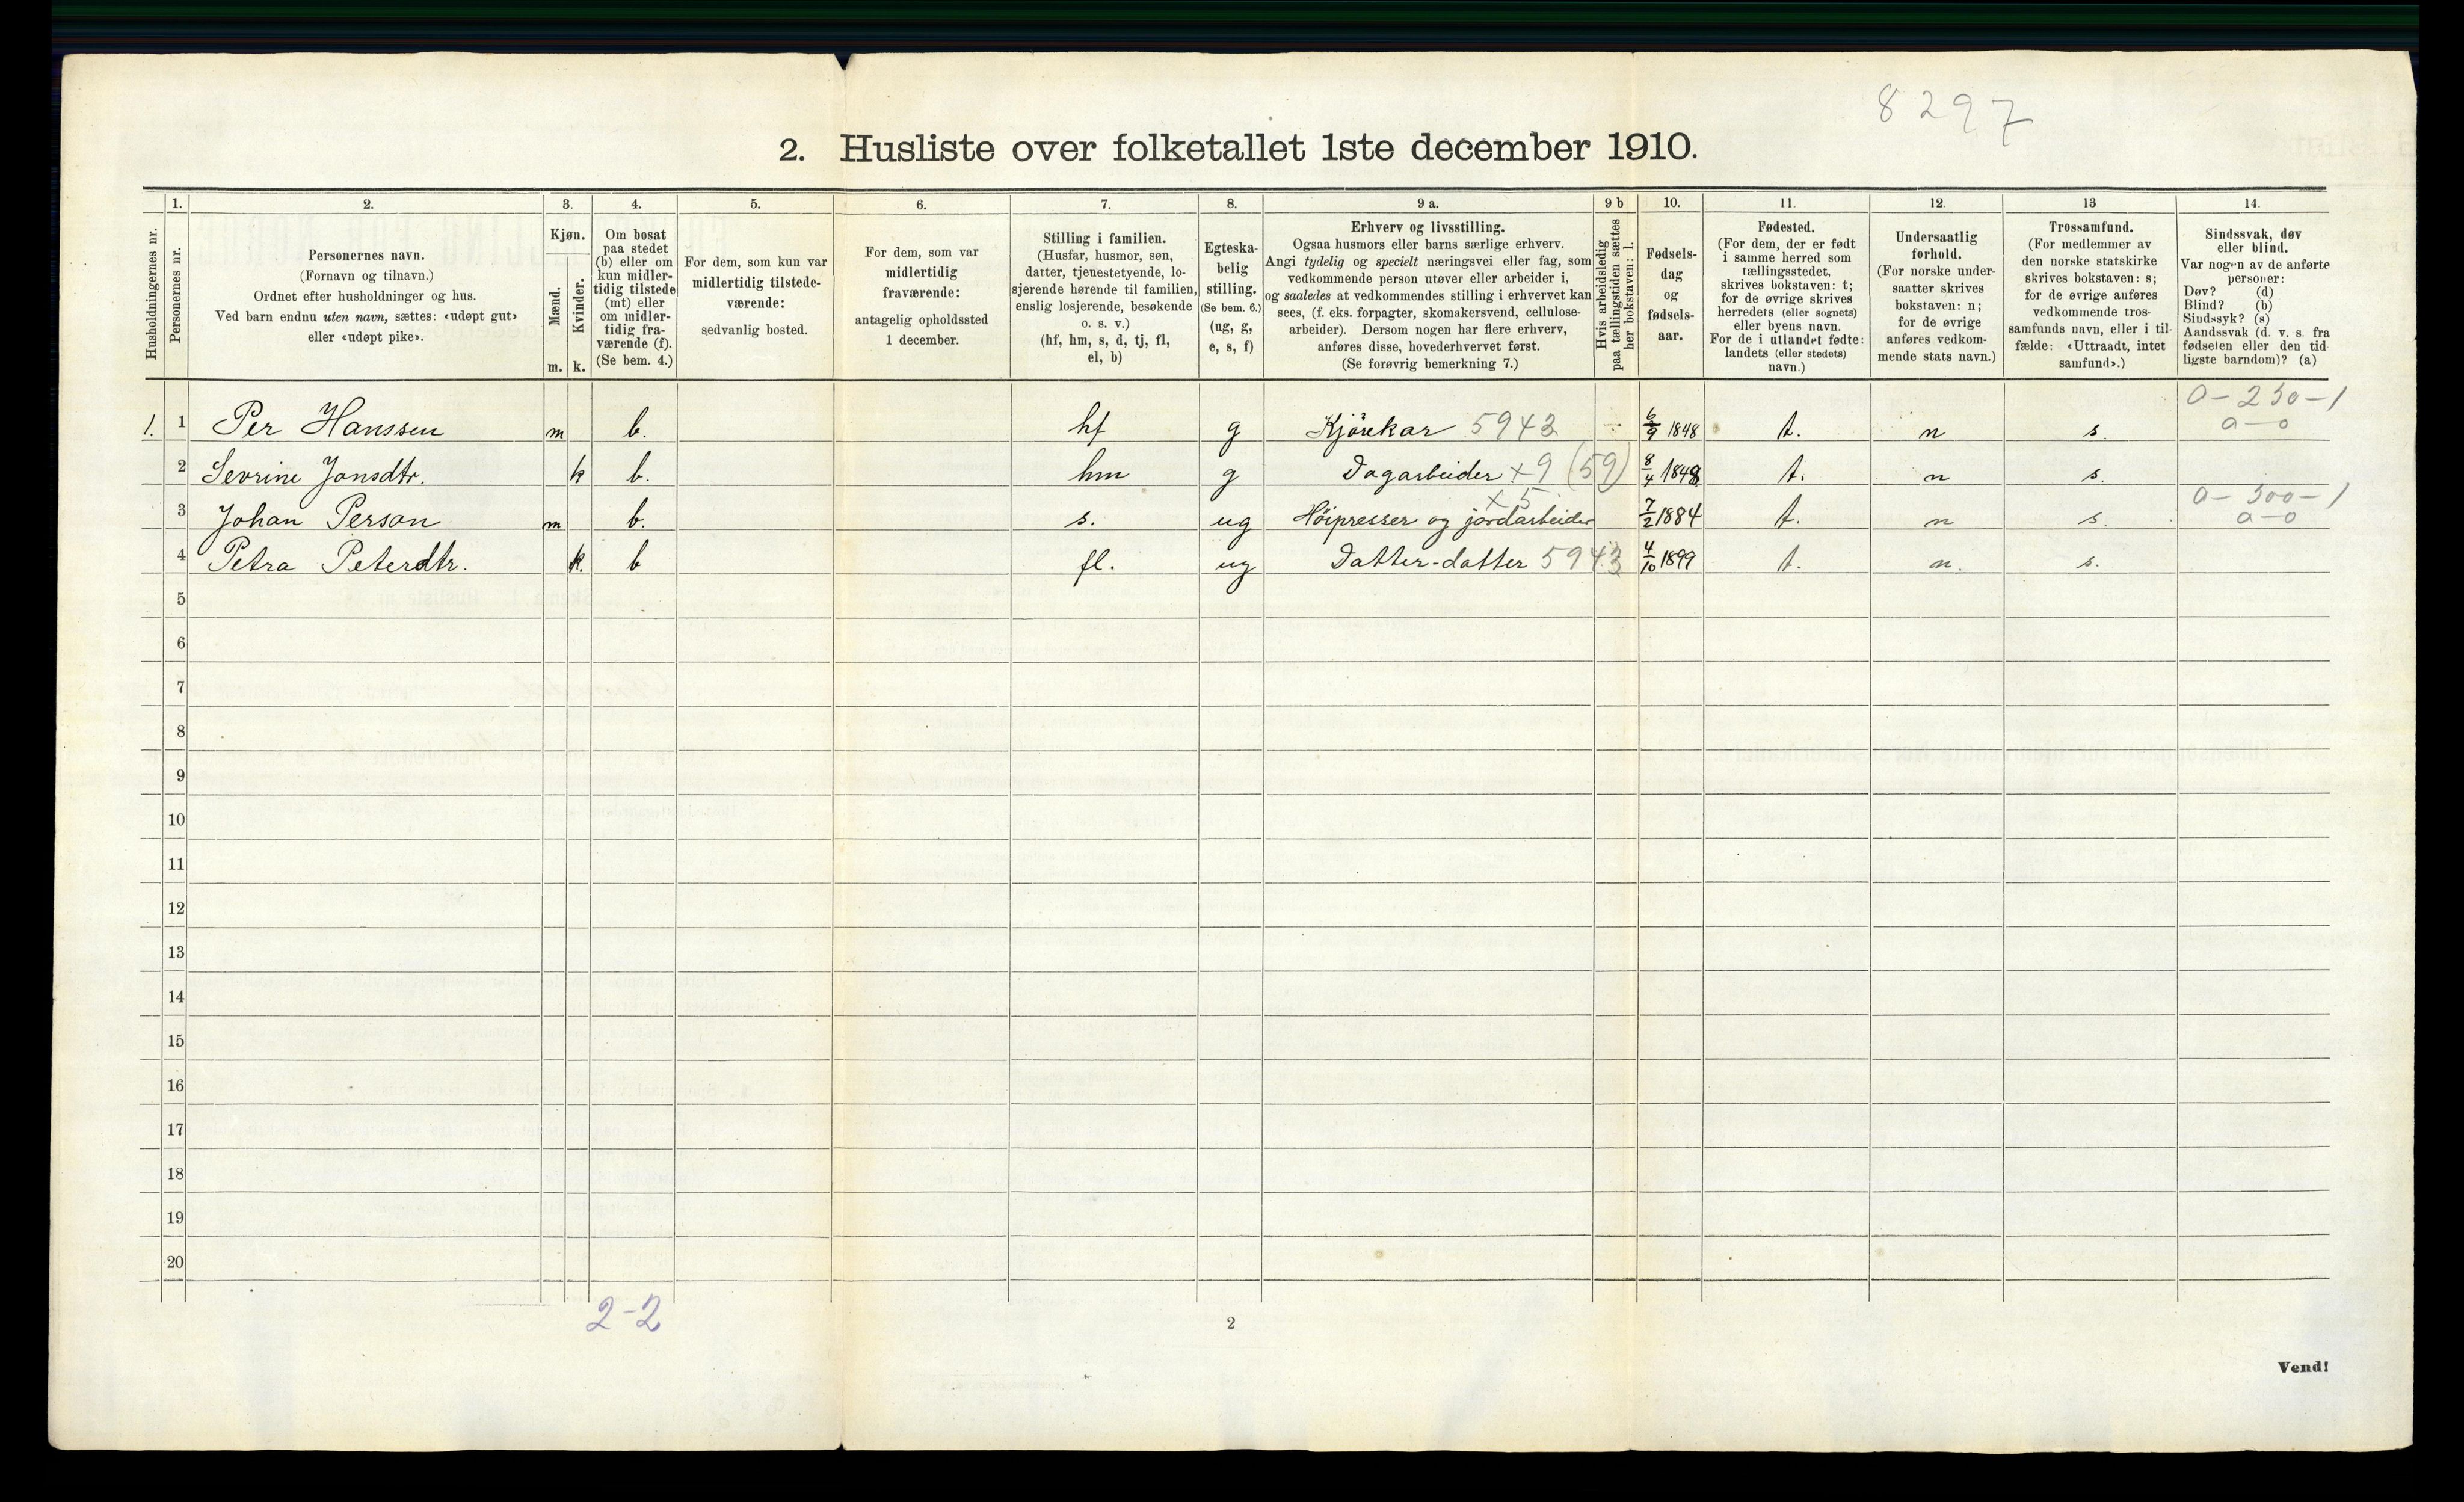 8297
2. Husliste over folketallet 1ste december 1910.
Husholdningernes nr.
1.
Personernes nr.
2.
Personernes navn.
(Fornavn og tilnavn.)
Ordnet efter husholdninger og hus.
Ved barn endnu uten navn, sættes: «udøpt gut»
eller «udøpt pike».
3.
Kjøn.
Mænd.
Kvinder.
m. k.
4.
Om bosat
paa stedet
(b) eller om
kun midler-
tidig tilstede
(mt) eller
om midler-
tidig fra-
værende (f).
(Se bem. 4.)
5.
For dem, som kun var
midlertidig tilstede-
værende:
sedvanlig bosted.
6.
For dem, som var
midlertidig
fraværende:
antagelig opholdssted
1 december.
7.
Stilling i familien.
(Husfar, husmor, søn,
datter, tjenestetyende, lo-
sjerende hørende til familien,
enslig losjerende, besøkende
o. s. v.)
(hf, hm, s, d, tj, fl,
el, b)
8.
Egteska-
belig
stilling.
(Se bem. 6.)
(ug, g,
e, s, f)
9 a.
Erhverv og livsstilling.
Ogsaa husmors eller barns særlige erhverv.
Angi tydelig og specielt næringsvei eller fag, som
vedkommende person utøver eller arbeider i,
og saaledes at vedkommendes stilling i erhvervet kan
sees, (f. eks. forpagter, skomakersvend, cellulose-
arbeider). Dersom nogen har flere erhverv,
anføres disse, hovederhvervet først.
(Se forøvrig bemerkning 7.)
9 b
Hvis arbeidsledig
paa tællingstiden sættes
her bokstaven: l.
10.
Fødsels-
dag
og
fødsels-
aar.
11.
Fødested.
(For dem, der er født
i samme herred som
tællingsstedet,
skrives bokstaven: t;
for de øvrige skrives
herredets (eller sognets)
eller byens navn.
For de i utlandet fødte:
landets (eller stedets)
navn.)
12.
Undersaatlig
forhold.
(For norske under-
saatter skrives
bokstaven: n;
for de øvrige
anføres vedkom-
mende stats navn.)
13
Trossamfund.
(For medlemmer av
den norske statskirke
skrives bokstaven: s;
for de øvrige anføres
vedkommende tros-
samfunds navn, eller i til-
fælde: «Uttraadt, intet
samfund».)
14.
Sindssvak, døv
eller blind.
Var nogen av de anførte
personer:
Døv? (d)
Blind? (b)
Sindssyk? (s)
Aandssvak (d. v. s. fra
fødselen eller den tid-
ligste barndom)? (a)
0-230-1
1. 1 Per Hanssen m b. hf g Kjørekar 5942 6/9 1848 t. n s. a-0
2 Sevrine Jonsdtr. k b. hm g Dagarbeider x9 (59) 8/4 1848 t. n s.
x5 0-300-1
3 Johan Person m b. s. ug Høipresser og jordarbeider 7/2 1884 t. n s. a-0
4 Petra Petersdtr. k. b fl. ug Datter-datter 5943 4/10 1899 t. n. s.
5
6
7
8
9
10
11
12
13
14
15
16
17
18
19
20
2-2
2
Vend!